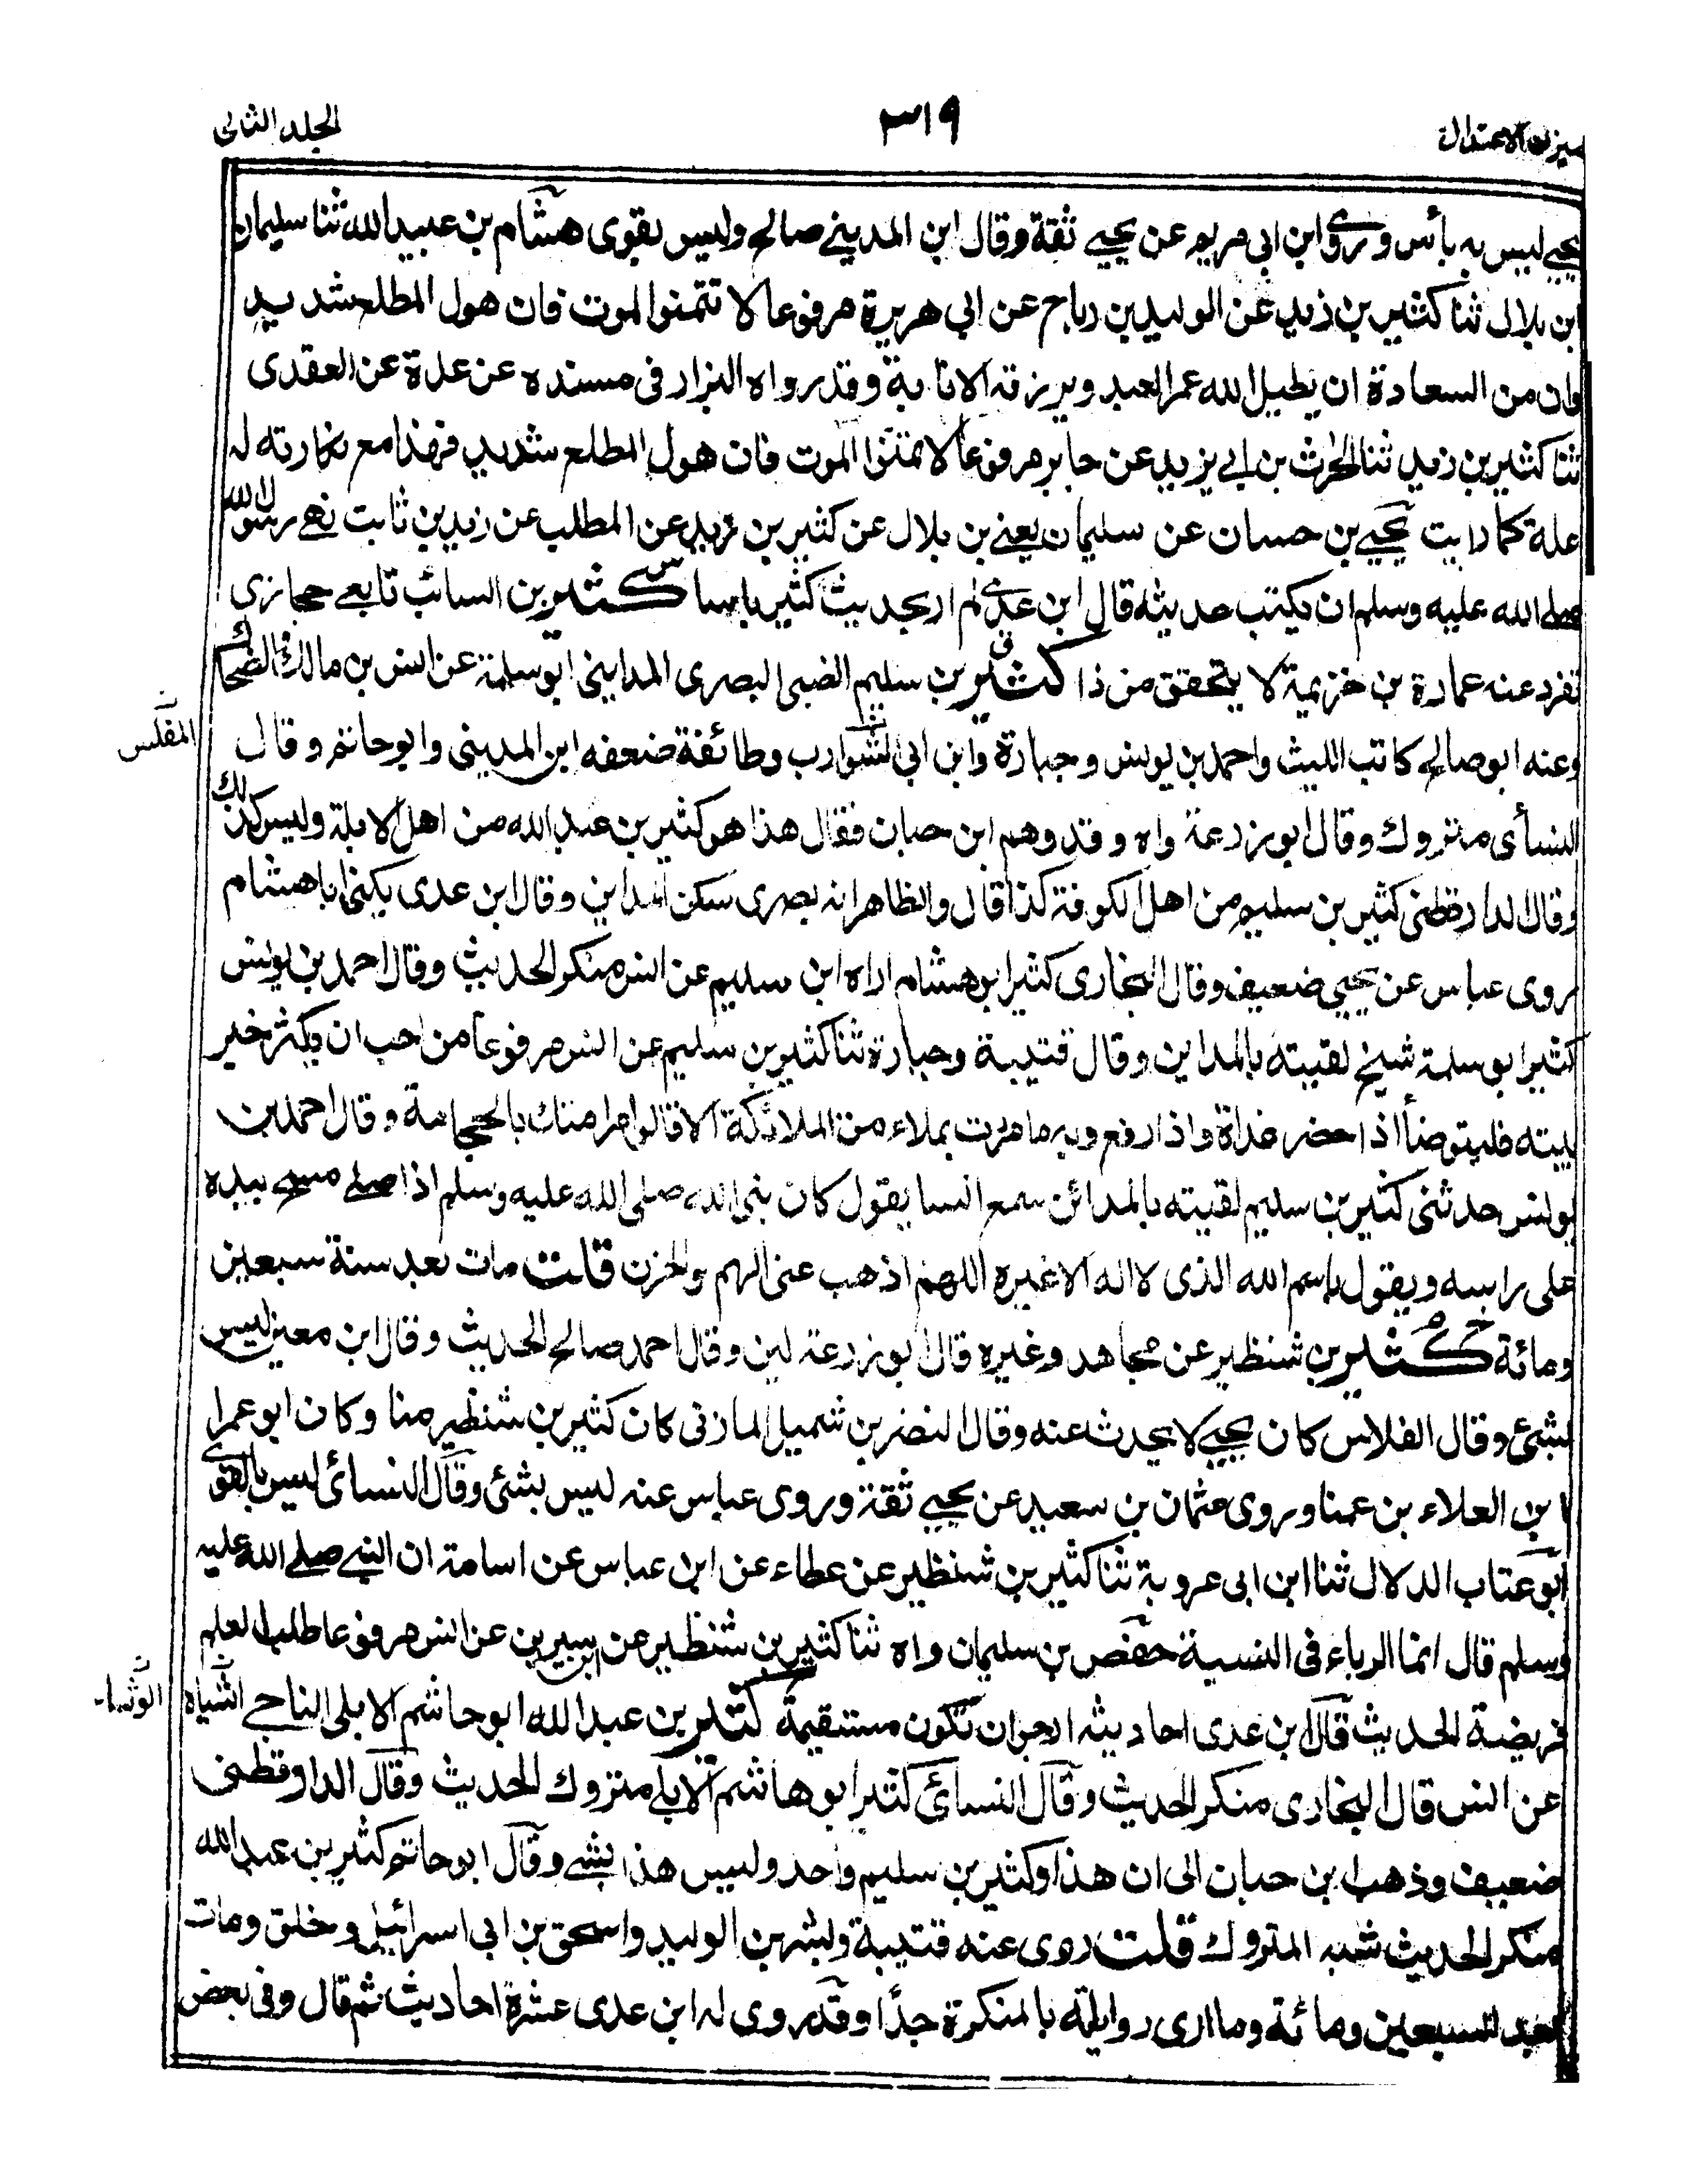 ميزان الاعتدال
٣١٩
الجلد الثانى
يحيى ليس به بأس وروى ابن ابى مريم عن يحيى ثقة وقال ابن المدينى صالح وليس بقوى هشام بن عبيد الله ثنا سليمان
ابن بلال ثنا كثير بن زيد عن الوليد بن رباح عن ابى هريرة مرفوعا لا تتمنوا الموت فان هول المطلع شديد
وان من السعادة ان يطيل الله عمر العبد ويرزقه الانابة وقد رواه البزار فى مسنده عن عدة عن العقدى
ثنا كثير بن زيد ثنا الحرث بن ابى يزيد عن جابر مرفوعا لا تمنوا الموت فان هول المطلع شديد فهذا مع نكارته له
علة كما رايت يحيى بن حسان عن سليمان يعنى بن بلال عن كثير بن زيد عن المطلب عن زيد بن ثابت نهى رسول الله
صلى الله عليه وسلم ان يكتب حديثه قال ابن عدى لم ار بحديث كثير باسا كثير بن السائب تابعى حجازى
تفرد عنه عمارة بن خزيمة لا يتحقق من ذا كثير بن سليم الضبى البصرى المداينى ابو سلمة عن انس بن مالك والضحاك
وعنه ابو صالح كاتب الليث واحمد بن يونس وجبارة وابن ابى الشوارب وطائفة ضعفه ابن المدينى وابو حاتم وقال
المفلس
النسأى متروك وقال ابو زرعة واه وقد وهم ابن حبان فقال هذا هو كثير بن عبد الله من اهل الابلة وليس كذلك
وقال الدارقطنى كثير بن سليم من اهل الكوفة كذا قال والظاهر انه بصرى سكن المداين وقال ابن عدى يكنى اباهشام
روى عباس عن يحيى ضعيف وقال البخارى كثير ابن هشام اراه ابن سليم عن انس منكر الحديث وقال احمد بن يونس
كثير ابو سلمة شيخ لقيته بالمداين وقال قتيبة وجبارة ثنا كثير بن سليم عن انس مرفوعا من احب ان يكثر خير
بيته فليتوضأ اذا حضر غداة واذا رفع وبه ما مررت بملاء من الملائكة الا قالوا مر امتك بالحجامة وقال احمد بن
يونس حدثنى كثير بن سليم لقيته بالمدائن سمع انسا يقول كان نبى الله صلى الله عليه وسلم اذا صلى مسح بيده
على راسه ويقول باسم الله الذى لا اله الا غيره اللهم اذهب عنى الهم والحزن قلت مات بعد سنة سبعين
ومائة كثير بن شنظير عن مجاهد وغيره قال ابو زرعة لين وقال احمد صالح الحديث وقال ابن معين ليس
بشئ وقال الفلاس كان يحيى لا يحدث عنه وقال النضر بن شميل المازنى كان كثير بن شنظير منا وكان ابو عمرا
ابن العلاء بن عمنا وروى عثمان بن سعيد عن يحيى ثقة وروى عباس عنه ليس بشئ وقال النسائى ليس بالقوى
ابو عتاب الدلال ثنا ابن ابى عروبة ثنا كثير بن شنظير عن عطاء عن ابن عباس عن اسامة ان النبى صلى الله عليه
وسلم قال انما الرباء فى النسية حفص بن سليمان واه ثنا كثير بن شنظير عن ابن سيرين عن انس مرفوعا طلب العلم
فريضة الحديث قال ابن عدى احاديثه ارجو ان تكون مستقيمة كثير بن عبد الله ابو حاشم الابلى الناجى
الوشاء
عن انس قال البخارى منكر الحديث وقال النسائى كثير ابو هاشم الابلى متروك الحديث وقال الداوقطنى
ضعيف وذهب ابن حبان الى ان هذا وكثير بن سليم واحد وليس هذا بشى وقال ابو حاتم كثير بن عبد الله
منكر الحديث شبه المتروك قلت روى عنه قتيبة وبشر بن الوليد واسحق بن ابى اسرائيل وخلق ومات
بعد السبعين ومائة وما ارى رواياته بالمنكرة جدًا وقد روى له ابن عدى عشرة احاديث ثم قال وفى بعض